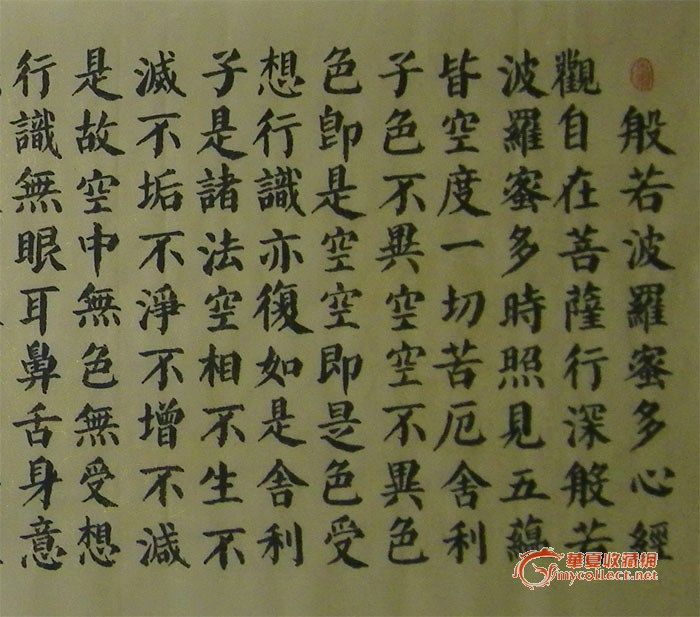 般若波羅蜜多心經
觀自在菩薩行深般若
波羅蜜多時照見五蘊
皆空度一切苦厄舍利
子色不異空空不異色
色即是空空即是色受
想行識亦復如是舍利
子是諸法空相不生不
滅不垢不淨不增不減
是故空中無色無受想
行識無眼耳鼻舌身意
華夏收藏網
mycollect.net